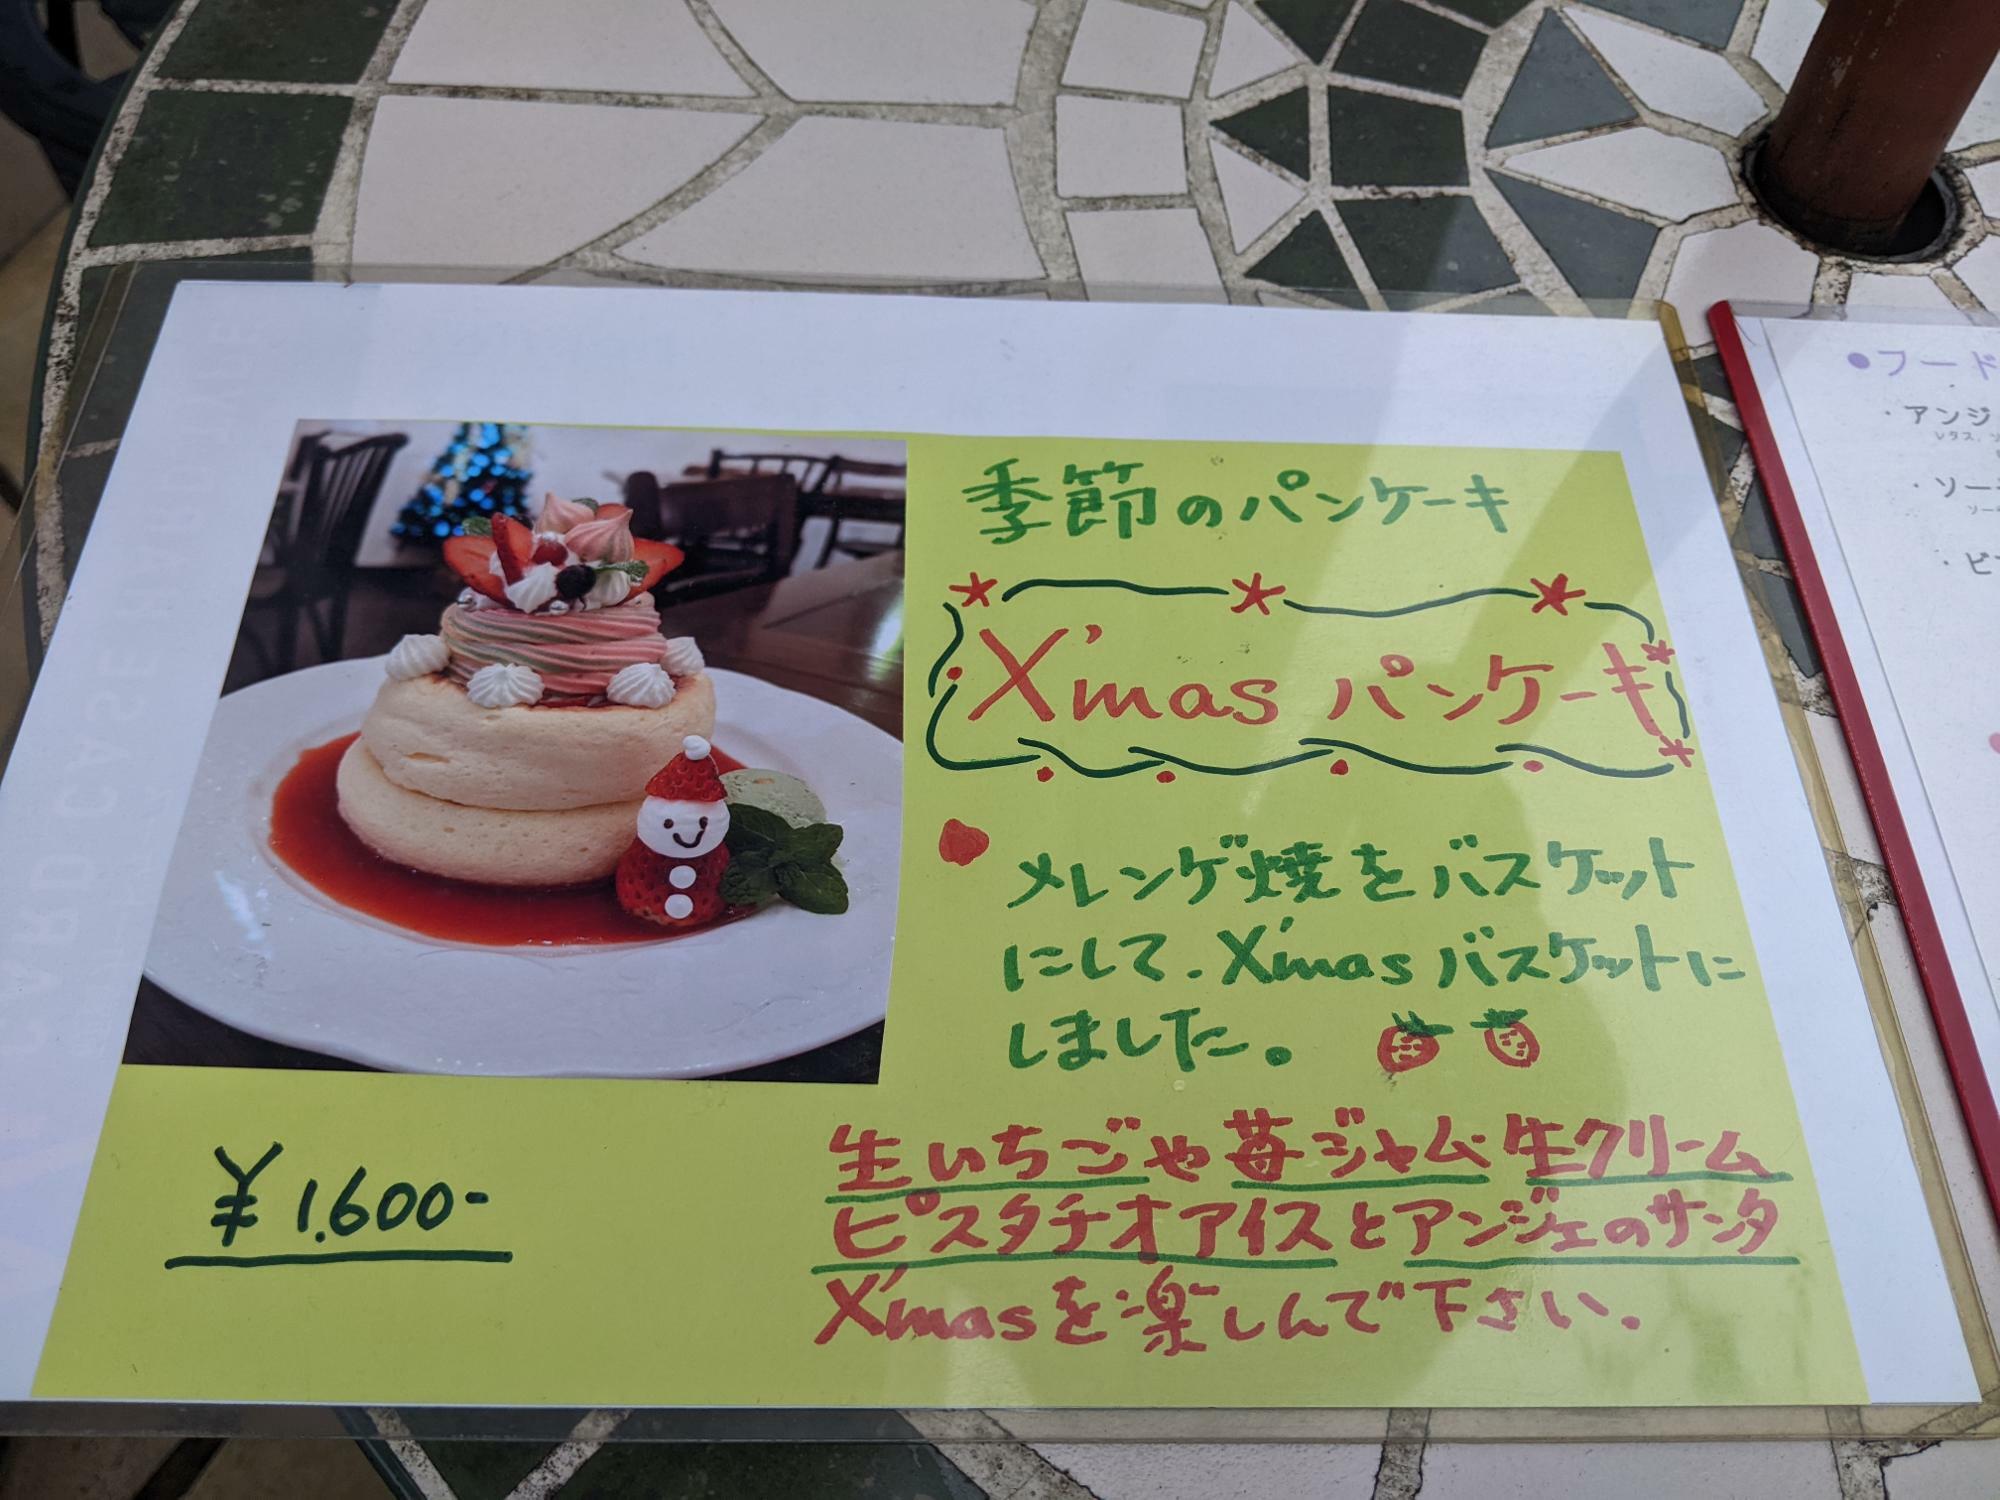 季節のパンケーキ
X'mas パンケーキ
メレンゲ焼をバスケット
にして、X'masバスケットに
しました。
生いちごや苺ジャム生クリーム
ピスタチオアイスとアンジェのサンタ
X'masを楽しんで下さい。
¥1,600-
●フード
・アンジ
レタス、ソ
・ソー
ソー
・ピ